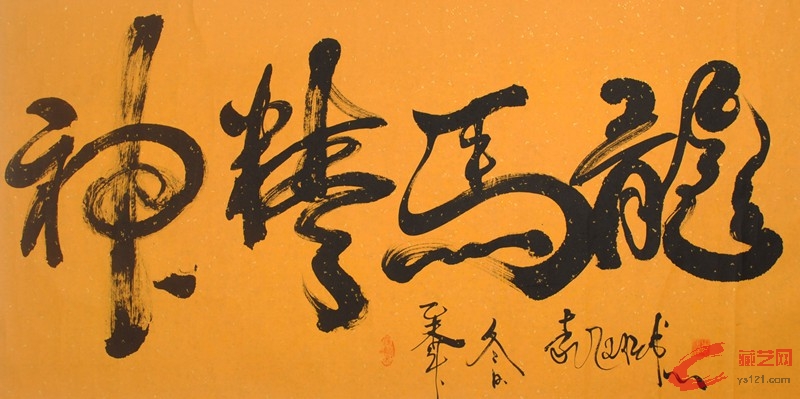 龍馬精神
冬日
藏艺网
ys121.com